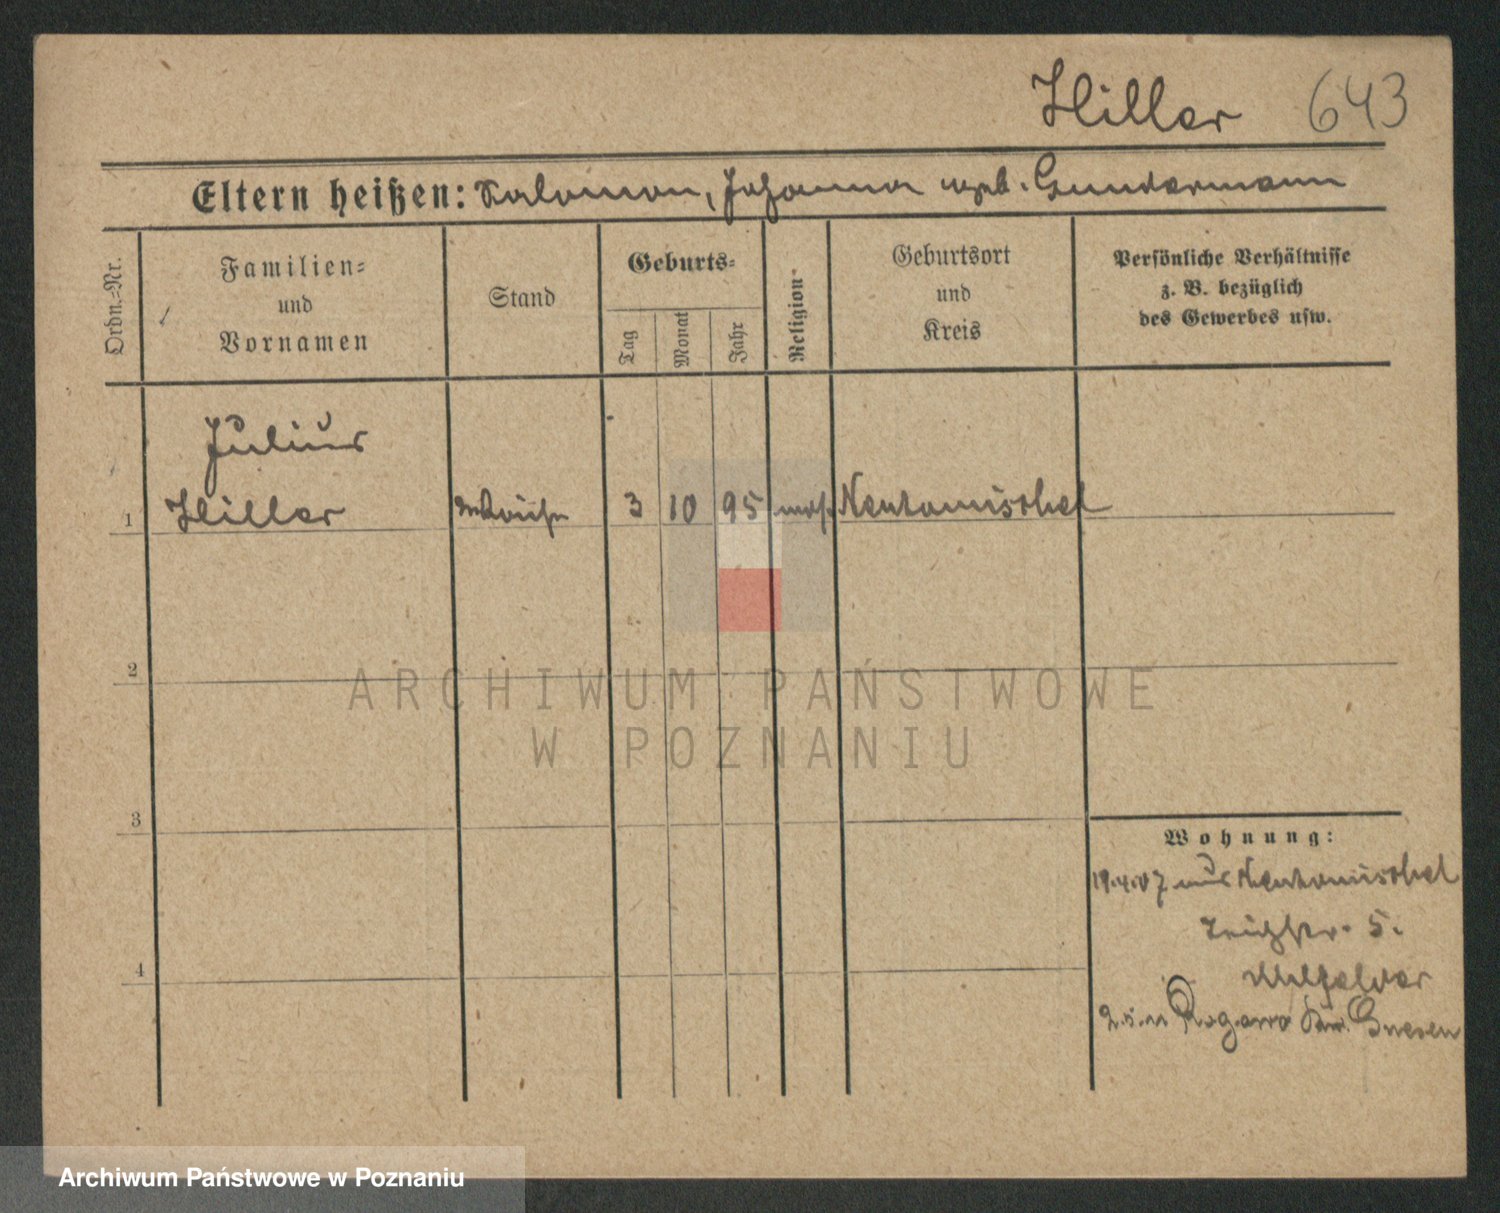 Hiller 643
Eltern heißen: Salomon, Johanna geb. Gundermann
Ordn.=Nr.
Familien=
und
Vornamen
Stand
Geburts=
Tag
Monat
Jahr
Religion
Geburtsort
und
Kreis
Persönliche Verhältnisse
z. B. bezüglich
des Gewerbes usw.
Julius
1 Hiller 3 10 95 mos. Neutomischel
2
3
4
Wohnung:
19.4.07 aus Neutomischel
5.
2.5.11 Rogowo Gnesen
ARCHIWUM PAŃSTWOWE
W POZNANIU
Archiwum Państwowe w Poznaniu